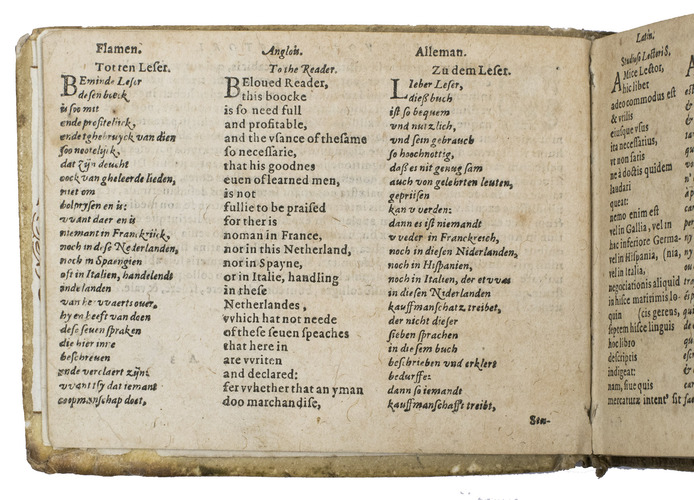 Flamen.
Tot ten Leser.
BEminde Leser
desen boeck
is soo nut
ende profitelijck,
ende tghebruyck van dien
soo nootelijck,
dat zijn deucht
oock van gheleerde lieden,
niet om
volprysen en is:
want daer en is
niemant in Franckrijck,
noch in dese Nederlanden,
noch in Spaengien
oft in Italien, handelende
inde landen
van herwaerts over,
hy en heeft van doen
dese seven spraken
die hier inne
beschreven
ende verclaert zijn:
want tsy dat iemant
coopmanschap doet,
Anglois.
To the Reader.
BEloued Reader,
this boocke
is so need full
and profitable,
and the vsance of thesame
so necessarie,
that his goodnes
euen of learned men,
is not
fullie to be praised
for ther is
noman in France,
nor in this Netherland,
nor in Spayne,
or in Italie, handling
in these
Netherlandes,
vvhich hat not neede
of these seuen speaches
that here in
are vvriten
and declared:
fer vvhether that an yman
doo marchandise,
Alleman.
Zu dem Leser.
LIeber Leser,
dieß buch
ist so bequem
vnd nutzlich,
vnd sein gebrauch
so hoochnottig,
daß es nit genug sam
auch von gelehrten leuten,
gepriisen
kan v verden:
dann es ist niemandt
v veder in Franckreich,
noch in diesen Niderlanden,
noch in Hispanien,
noch in Italien, der etvvas
in diesen Niderlanden
kauffmanschatz treibet,
der nicht dieser
sieben sprachen
in diesem buch
beschrieben vnd erklert
bedurffe:
dann so iemandt
kauffmanschafft treibt,
Sin-
Latin.
Studioso Lectori S.
AMice Lector,
hic liber
adeo commodus est
& vtilis
eiusque vsus
ita necessarius,
vt non satis
ne à doctis quidem
laudari
queat:
nemo enim est
vel in Gallia, vel in
hac inferiore Germa-
vel in Hispania, (nia,
vel in Italia,
negociationis aliquid
in hisce maritimis lo-
quin (cis gerens,
septem hisce linguis
hoc libro
descriptis
indigeat:
nam, siue quis
mercaturæ intentꝰ sit